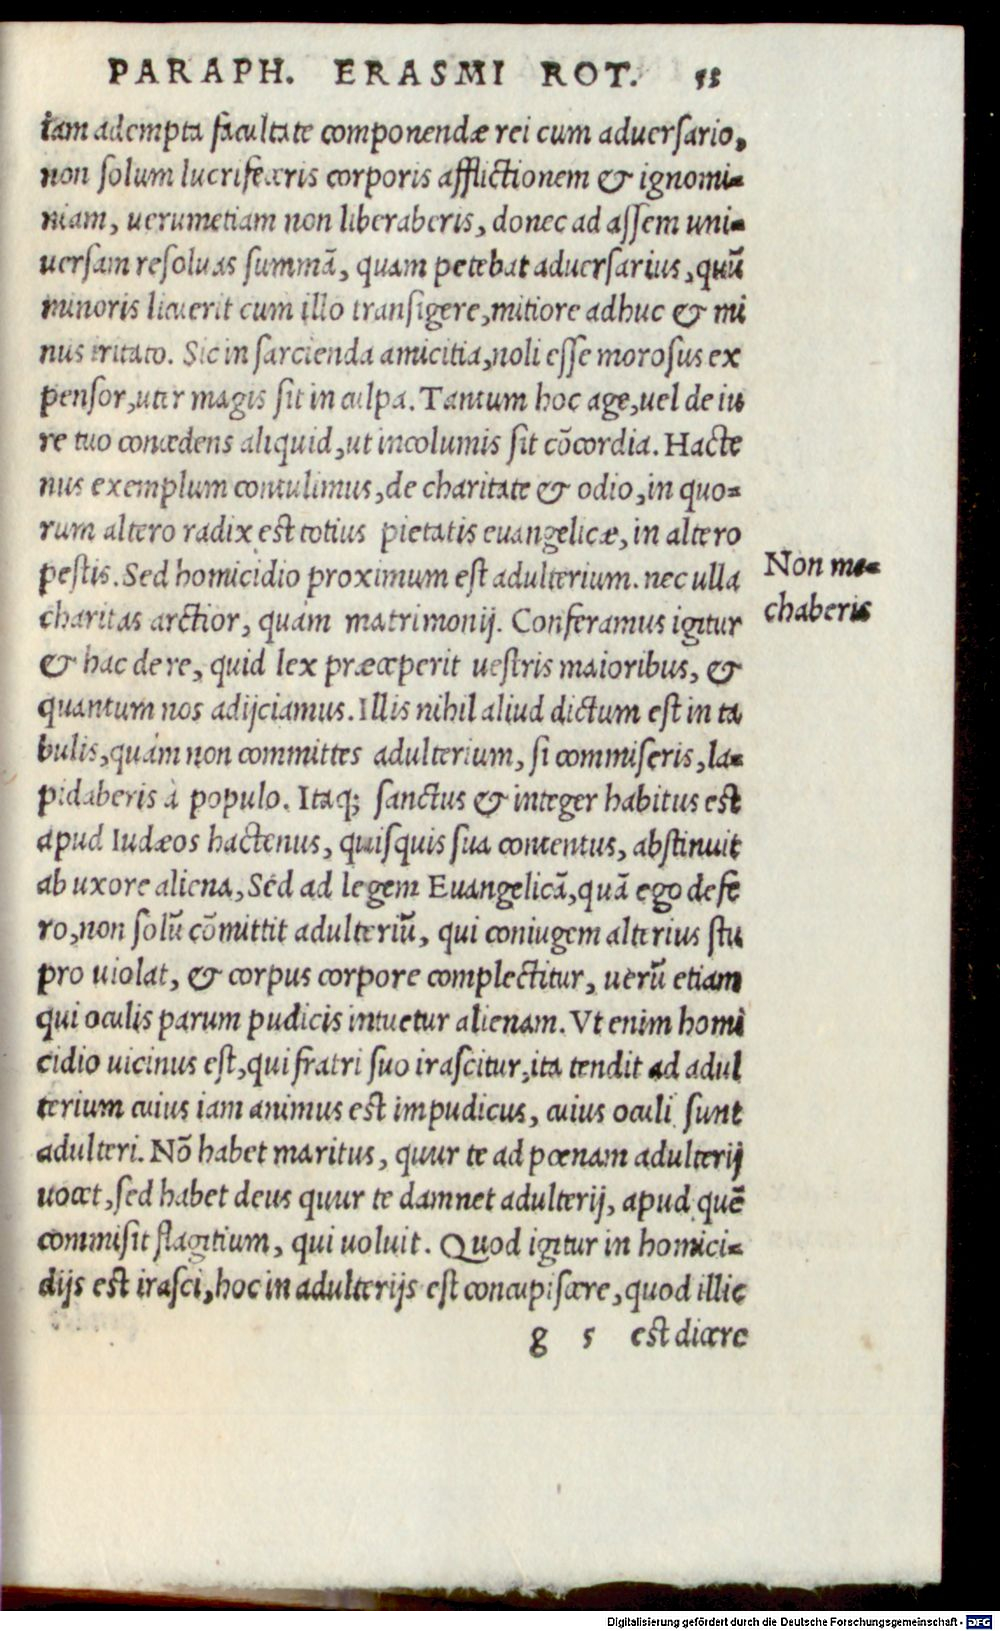 PARAPH. ERASMI ROT. 55
tam adempta facultate componendæ rei cum aduersario,
non solum lucrifeceris corporis afflictionem & ignomi-
niam, uerumetiam non liberaberis, donec ad assem uni-
uersam resoluas summã, quam petebat aduersarius, quũ
minoris licuerit cum illo transigere, mitiore adhuc & mi
nus iritato. Sic in sarcienda amicitia, noli esse morosus ex
pensor, uter magis sit in culpa. Tantum hoc age, uel de iu
re tuo concedens aliquid, ut incolumis sit cõcordia. Hacte
nus exemplum contulimus, de charitate & odio, in quo-
rum altero radix est totius pietatis euangelicæ, in altero
pestis. Sed homicidio proximum est adulterium. nec ulla
Non me-
chaberis
charitas arctior, quàm matrimonij. Conferamus igitur
& hac de re, quid lex præceperit uestris maioribus, &
quantum nos adijciamus. Illis nihil aliud dictum est in ta
bulis, quàm non committes adulterium, si commiseris, la-
pidaberis à populo. Itaq; sanctus & integer habitus est
apud Iudæos hactenus, quisquis sua contentus, abstinuit
ab uxore aliena, Sed ad legem Euangelicã, quã ego defe
ro, non solũ cõmittit adulteriũ, qui coniugem alterius stu
pro uiolat, & corpus corpore complectitur, uerũ etiam
qui oculis parum pudicis intuetur alienam. Vt enim homi
cidio uicinus est, qui fratri suo irascitur, ita tendit ad adul
terium cuius iam animus est impudicus, cuius oculi sunt
adulteri. Nõ habet maritus, quur te ad pœnam adulterij
uocet, sed habet deus quur te damnet adulterij, apud quẽ
commisit flagitium, qui uoluit. Quod igitur in homici-
dijs est irasci, hoc in adulterijs est concupiscere, quod illic
g 5 est dicere
Digitalisierung gefördert durch die Deutsche Forschungsgemeinschaft - DFG